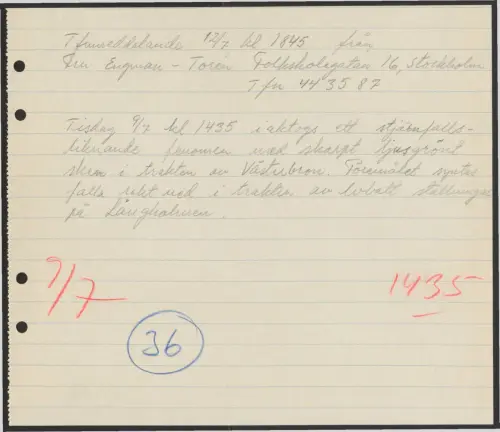 Tfnmeddelande 12/7 kl 1845 från
Fru Engman-Torén Folkskolegatan 16, Stockholm
Tfn 44 35 87
Tisdag 9/7 kl 1435 iaktogs ett stjärnfalls-
liknande fenomen med skarpt ljusgrönt
sken i trakten av Västerbron. Föremålet syntes
falla rakt ned i trakten av kobolt ställningar
på Långholmen.
9/7
1435
36